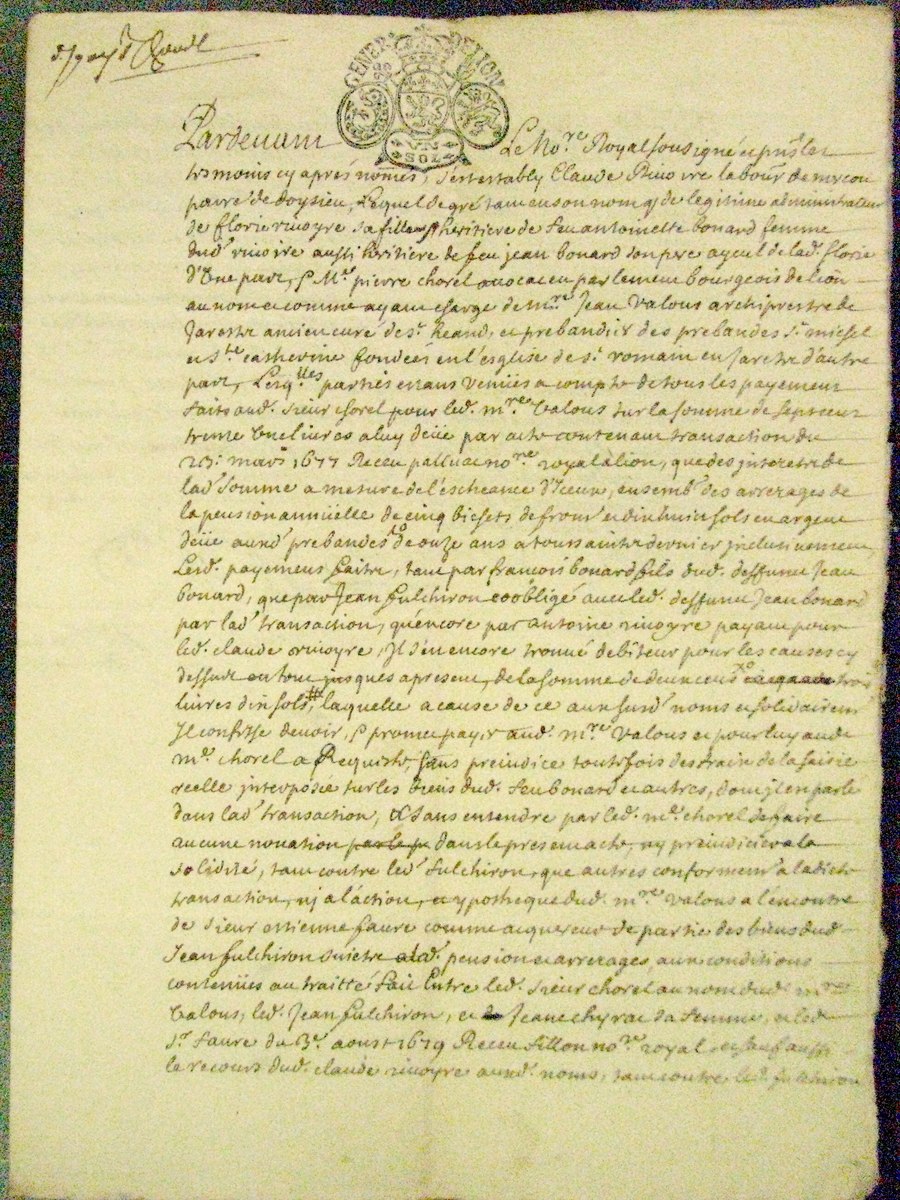 GENER DE LION
VN
SOL
Pardevant Le No.re Royal soussigné et pnts les
tesmoins cy aprés només, s'est estably Claude Rivoire labour de
parre de doysieu, Lequel de gré tam en son nom q de legitime administrateur
de florie rivoyre sa fille heritiere de feu antoinette bonard femme
dud. rivoire aussi heritiere de feu jean bonard son pere ayeul de lad. florie
d'Une part, & M.e pierre chorel avocat en parlement bourgeois de lion
au nom et comme ayant charge de m.re Jean Valous archiprestre de
Jarestz ancien curé de s.t Heand, et prebandier des prebandes s.t michel
et s.te catherine fondées en l'esglise de s.t romain en Jarestz d'autre
part, Lesq.lles parties estans Veniies a compte de tous les payemens
faits aud. sieur chorel pour led. m.re Valous sur la somme de sept cent
trente Une livres a luy deüe par acte contenant transaction du
23. mars 1677 Receu palluat no.re royal a lion, que des interetz de
lad. somme a mesure de l'escheance d'Iceux, ensemb. des arrerages de
la pension annüelle de cinq bichets de froment et dix huit sols en argent
deüe auxd. prebandes de onze ans a toussaintz dernier inclusivement
Lesd. payemens faitz, tant par francois bonard fils dud. deffunct Jean
bonard, que par Jean fulchiron coobligé avec led. deffunct Jean bonard
par lad. transaction, qu'encore par antoine rivoyre payant pour
led. claude rivoyre, Il s'en encore trouvé debiteur pour les causes cy
dessus en tout jusques a present, de la somme de deux cens cinquante trois
livres dix sols, # laquelle a cause de ce aux susd. noms et solidairem.
Il confesse devoir, & promet payer aud. m.re Valous et pour luy aud.
m.e chorel a Requiste, sans prejudice toutesfois des train de la saisie
reelle interposée sur les biens dud. feu bonard et autres, dont il en parlé
dans lad. transaction, & sans entendre par led. m.e chorel de faire
aucune novation par le p dans le present acte, ny prejudicier a la
solidité, tant contre led. fulchiron, que autres conformem. a ladicte
transaction, nj a l'áction, et ypotheque dud. m.re Valous a l'encontre
de sieur estienne faure comme acquereur de partie des biens dud.
Jean fulchiron suietz a lad. pension et arrerages, aux conditions
contenües au traitté fait Entre led. sieur chorel au nom dud. m.re
Valous, led. Jean fulchiron, et Jeane chyrac sa femme, et led.
s.r faure du 3.e aoust 1679 Receu fillon no.re royal et sauf aussi
le recours dud. claude rivoyre auxd. noms, tant contre led. fulchiron